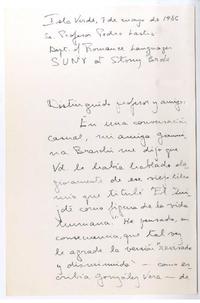 Isla Verde, 7 de mayo de 1986
Sr. Profesor Pedro Lastra
Dept. of Romance Languages
SUNY at Stony Brook
Distinguido profesor y amigo:
En una conversación
casual, mi amiga
na Brascó me dijo que
Vd. le había hablado elo
giosamente de ese viejo libro
mío que titulé "El Qui
jote como figura de la vida
humana". He pensado, en
consecuencia, que tal vez
le agrade la versión revisada
y disminuida — como es
cribía González Vera — de